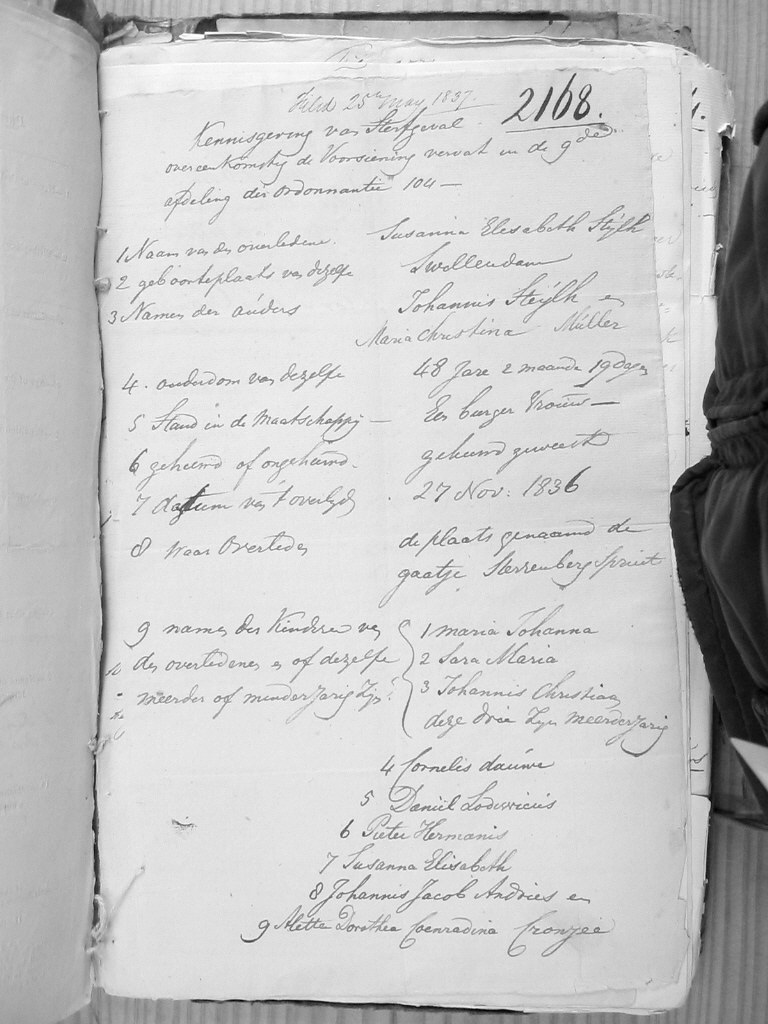 Filed 25th May 1837.
2168.
Kennisgeving van Sterfgeval
overeenkomstig de Voorsiening vervat in de 9de
afdeling der ordonnantie 104 —
1 Naam van den overledene. Susanna Elesabeth Stÿlh
2 geboorteplaats van dezelfe Swellendam
3 Names der ouders Johannis Steÿlh en
Maria Christina Müller
4. ouderdom van dezelfe 48 Jare 2 maande 19 dagen
5 Stand in de Maatschappij — Een burger Vrouw —
6 gehuwd of ongehuwd. gehuwd geweest
7 datum van't overlyden 27 Nov: 1836
8 waar Overleden de plaats genaamd de
gaatje Sterrenberg Spruit
9 names der Kinderen van
den overledenes en of dezelfe
meerder of minderjarig Zyn?
1 maria Johanna
2 Sara Maria
3 Johannis Christiaan
deze drie Zyn meerderjarig
4 Cornelis dauwe
5 Daniel Lodewicus
6 Pieter Hermanis
7 Susanna Elisabeth
8 Johannis Jacob Andries en
9 Aletta Dorothea Coenradina Cronjee